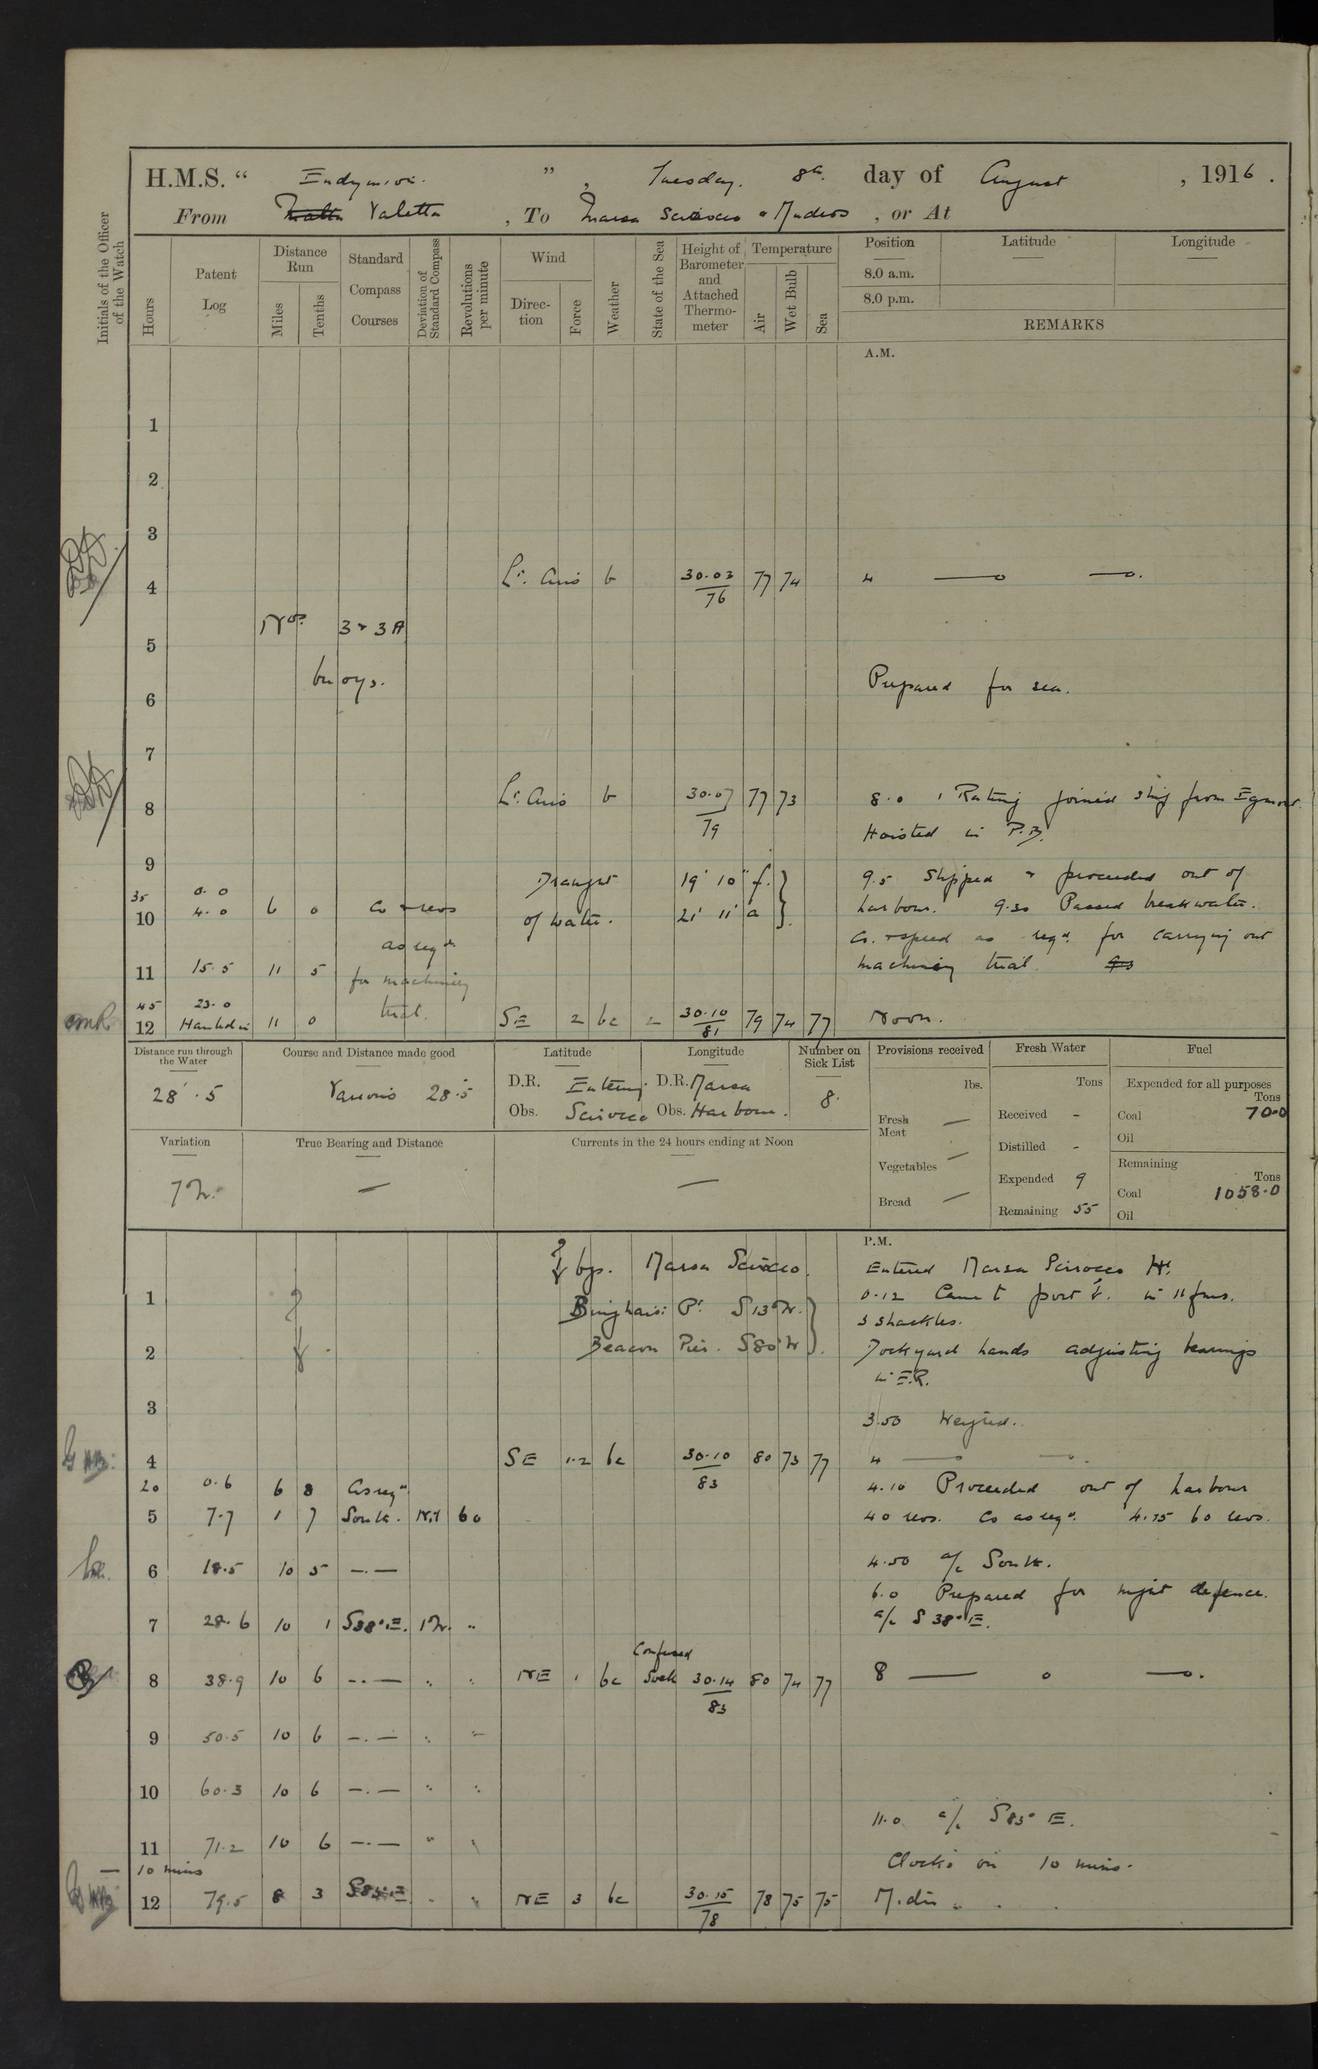 H.M.S. “ Endymion ” , Tuesday. 8th day of August , 1916 .
From Malta Valetta , To Marsa Scirocco & Mudros , or At
Initials of the Officer of the Watch
Hours
Patent Log
Distance Run
Miles
Tenths
Standard Compass Courses
Deviation of Standard Compass
Revolutions per minute
Wind
Direction
Force
Weather
State of the Sea
Height of Barometer and Attached Thermometer
Temperature
Air
Wet Bulb
Sea
Position Latitude Longitude
8.0 a.m.
8.0 p.m.
REMARKS
A.M.
1
2
3
4 Lt. Airs b 30.03/76 77 74 4
Nos. 3 & 3A
5
buoys. Prepared for sea.
6
7
8 Lt. Airs b 30.07/79 77 73 8.0 1 Rating joined ship from Egmont
Hoisted in P.B.
9 Draught 19' 10" f. 9.5 Slipped & proceeded out of
35 0.0
10 4.0 6 0 Co & revs of water. 21' 11" a harbour. 9.30 Passed breakwater.
as reqd Co. & speed as reqd. for carrying out
11 15.5 11 5 for machinery machinery trial.
45 23.0 trial.
12 Hauled in 11 0 SE 2 bc 2 30.10/81 79 74 77 Noon.
Distance run through the Water
28'.5
Course and Distance made good
Various 28.5
Latitude Longitude
D.R. Entering D.R. Marsa
Obs. Scirocco Obs. Harbour.
Number on Sick List
8.
Provisions received
lbs.
Fresh Meat —
Vegetables —
Bread —
Fresh Water
Tons
Received -
Distilled -
Expended 9
Remaining 55
Fuel
Expended for all purposes
Tons
Coal 70.0
Oil
Remaining
Tons
Coal 1058.0
Oil
Variation
7 W.
True Bearing and Distance
—
Currents in the 24 hours ending at Noon
—
P.M.
bgs. Marsa Scirocco. Entered Marsa Scirocco Hr.
1 Binghaisi Pt. S 13° W. 0.12 Came to port in 11 fms.
3 shackles.
2 Beacon Pier. S 80° W Dockyard hands adjusting bearings
in E.R.
3 3.50 Weighed.
4 SE 1-2 bc 30.10/83 80 73 77 4
20 0.6 6 8 As reqd 4.10 Proceeded out of harbour
5 7.7 1 7 South. Nil 60 40 revs. Co as reqd. 4.35 60 revs.
6 18.5 10 5 —.— 4.50 a/c South.
6.0 Prepared for night defence.
7 28.6 10 1 S38°E. 1 W. " a/c S 38° E.
8 38.9 10 6 —.— " " NE 1 bc Confused 30.14/83 80 74 77 8
9 50.5 10 6 —.— " "
10 60.3 10 6 —.— " "
11.0 a/c S 85° E.
11 71.2 10 6 —.— " "
— 10 mins Clocks on 10 mins.
12 79.5 8 3 S85°E " " NE 3 bc 30.15/78 78 75 75 Midn.